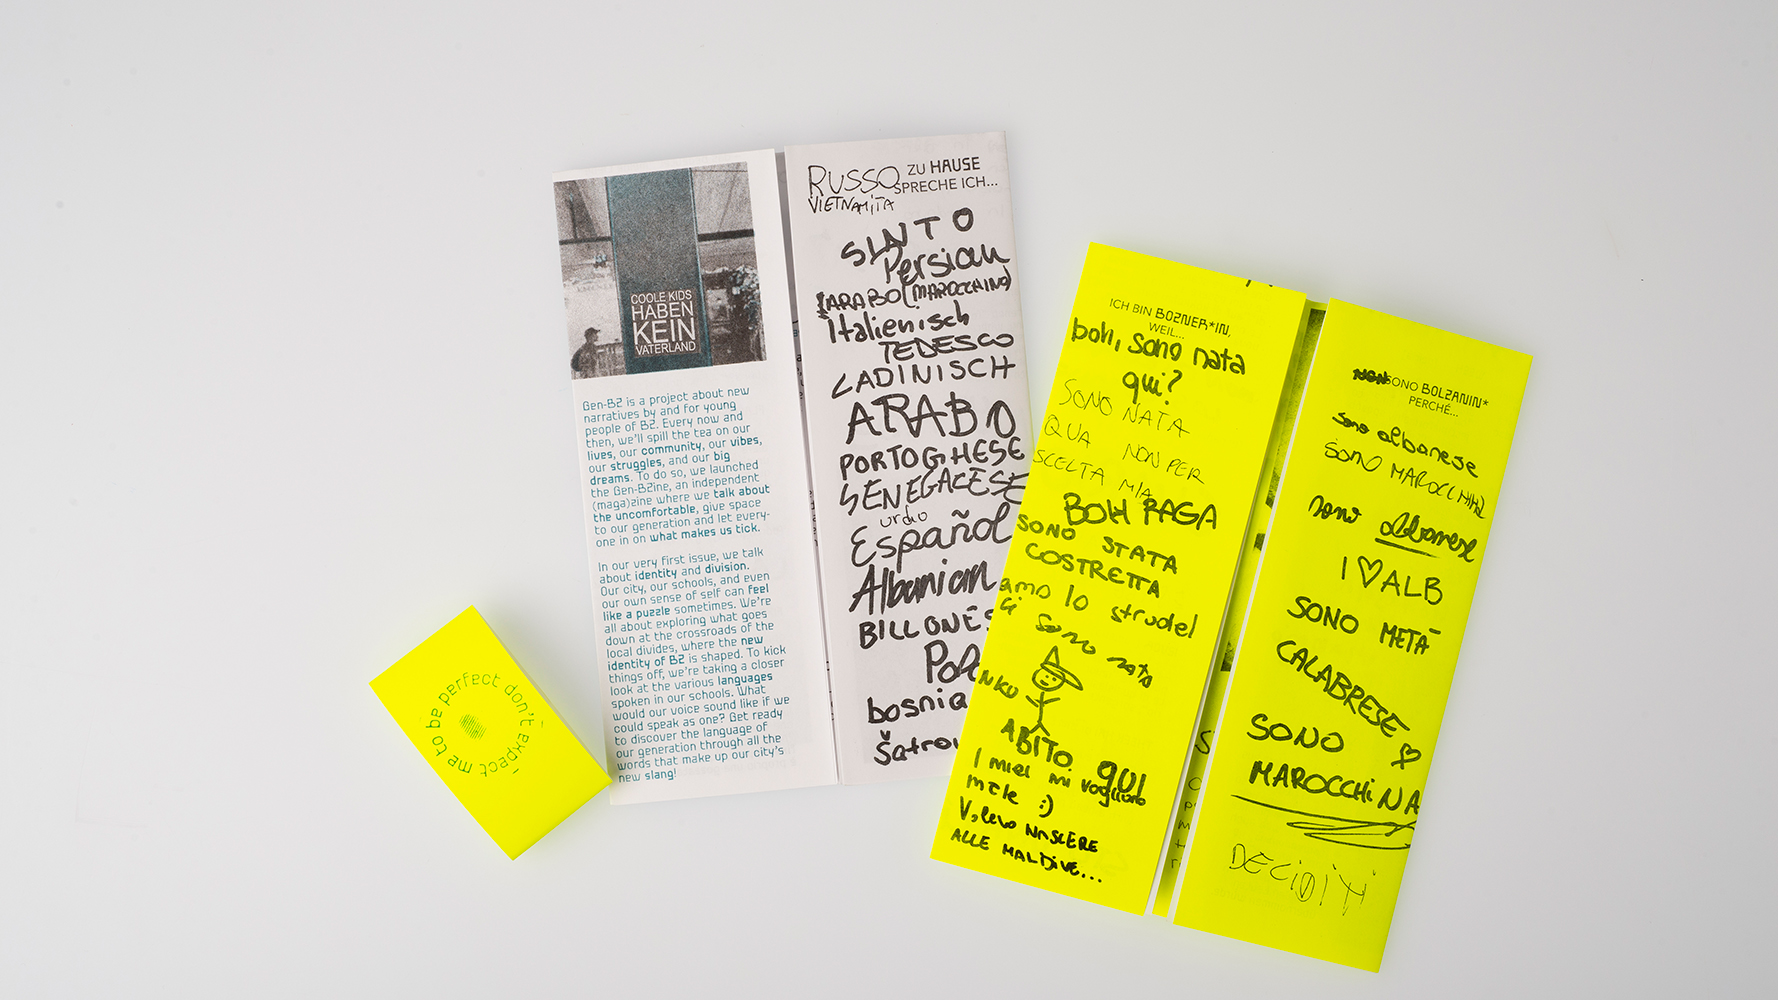 COOLE KIDS
HABEN
KEIN
VATERLAND
Gen-BZ is a project about new
narratives by and for young
people of BZ. Every now and
then, we'll spill the tea on our
lives, our community, our vibes,
our struggles, and our big
dreams. To do so, we launched
the Gen-BZine, an independent
(maga)zine where we talk about
the uncomfortable, give space
to our generation and let every-
one in on what makes us tick.
In our very first issue, we talk
about identity and division.
Our city, our schools, and even
our own sense of self can feel
like a puzzle sometimes. We're
all about exploring what goes
down at the crossroads of the
local divides, where the new
identity of BZ is shaped. To kick
things off, we're taking a closer
look at the various languages
spoken in our schools. What
would our voice sound like if we
could speak as one? Get ready
to discover the language of
our generation through all the
words that make up our city's
new slang!
ZU HAUSE
SPRECHE ICH...
RUSSO
VIETNAMITA
SINTO
Persian
ARABO (MAROCCHINO)
Italienisch
TEDESCO
LADINISCH
ARABO
PORTOGHESE
SENEGALESE
urdu
Español
Albanian
BILLONES
Pol
bosnia
Šatrov
don't expect me to be perfect
ICH BIN BOZNER*IN,
WEIL...
boh, sono nata
qui?
SONO NATA
QUA NON PER
SCELTA MIA
BOH RAGA
SONO STATA
COSTRETTA
amo lo strudel
sono nato
ABITO QUI
I miei mi vogliono
male :)
Volevo NASCERE
ALLE MALDIVE...
SONO BOLZANIN*
PERCHÉ...
sono albanese
SONO MAROCCHINA
sono albanese
I ♡ ALB
SONO METÀ
CALABRESE
SONO
MAROCCHINA
DECIDITI